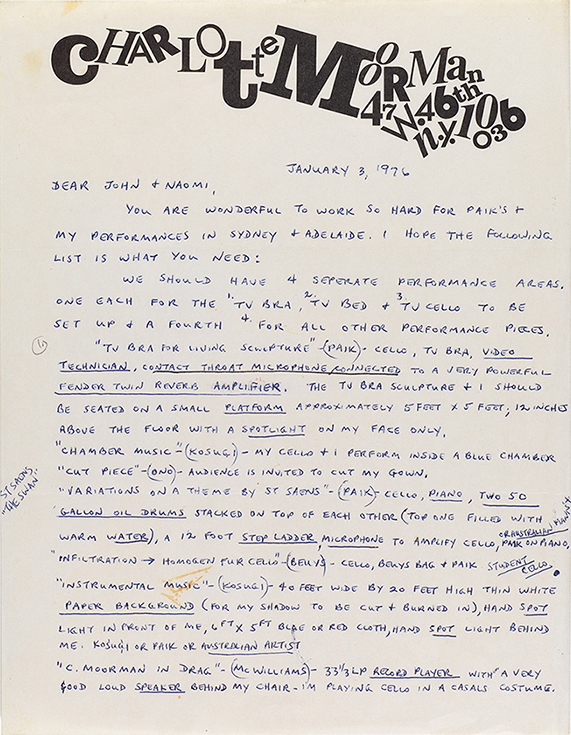 CHARLOTTE MOORMAN
47 W. 46th
n.y. 10036
JANUARY 3, 1976
DEAR JOHN + NAOMI,
YOU ARE WONDERFUL TO WORK SO HARD FOR PAIK'S +
MY PERFORMANCES IN SYDNEY + ADELAIDE. I HOPE THE FOLLOWING
LIST IS WHAT YOU NEED:
WE SHOULD HAVE 4 SEPERATE PERFORMANCE AREAS.
ONE EACH FOR THE 1. TV BRA, 2. TV BED + 3. TV CELLO TO BE
SET UP + A FOURTH 4. FOR ALL OTHER PERFORMANCE PIECES.
"TV BRA FOR LIVING SCULPTURE"-(PAIK)- CELLO, TV BRA, VIDEO
TECHNICIAN, CONTACT THROAT MICROPHONE CONNECTED TO A VERY POWERFUL
FENDER TWIN REVERB AMPLIFIER. THE TV BRA SCULPTURE + I SHOULD
BE SEATED ON A SMALL PLATFORM APPROXIMATELY 5 FEET X 5 FEET; 12 INCHES
ABOVE THE FLOOR WITH A SPOTLIGHT ON MY FACE ONLY.
"CHAMBER MUSIC"-(KOSUGI)- MY CELLO + I PERFORM INSIDE A BLUE CHAMBER
"CUT PIECE"-(ONO)- AUDIENCE IS INVITED TO CUT MY GOWN.
ST SAENS
"THE SWAN"
"VARIATIONS ON A THEME BY ST SAENS"-(PAIK)- CELLO, PIANO, TWO 50
GALLON OIL DRUMS STACKED ON TOP OF EACH OTHER (TOP ONE FILLED WITH
WARM WATER), A 12 FOOT STEP LADDER, MICROPHONE TO AMPLIFY CELLO, PAIK ON PIANO,
OR AUSTRALIAN PIANIST
"INFILTRATION → HOMOGEN FUR CELLO"-(BEUYS)- CELLO, BEUYS BAG + PAIK STUDENT CELLO.
"INSTRUMENTAL MUSIC"-(KOSUGI)- 40 FEET WIDE BY 20 FEET HIGH THIN WHITE
PAPER BACKGROUND (FOR MY SHADOW TO BE CUT + BURNED IN), HAND SPOT
LIGHT IN FRONT OF ME, 6 FT X 5 FT BLUE OR RED CLOTH, HAND SPOT LIGHT BEHIND
ME. KOSUGI OR PAIK OR AUSTRALIAN ARTIST
"C. MOORMAN IN DRAG"-(McWILLIAMS)- 33 1/3 LP RECORD PLAYER WITH A VERY
GOOD LOUD SPEAKER BEHIND MY CHAIR - I'M PLAYING CELLO IN A CASALS COSTUME.